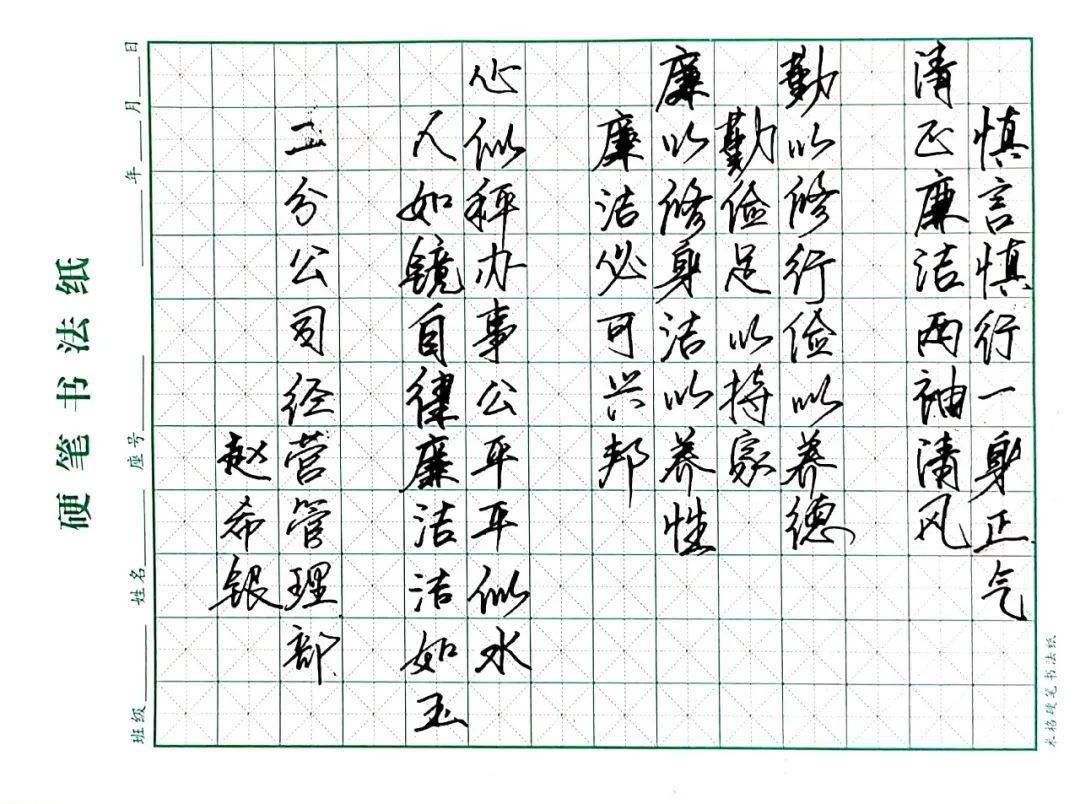 慎言慎行一身正气
清正廉洁两袖清风
勤以修行俭以养德
勤俭足以持家
廉以修身洁以养性
廉洁必可兴邦
心似秤办事公平平似水
人如镜自律廉洁洁如玉
二分公司经营管理部
赵希银
硬笔书法纸
班级 姓名 座号 年 月 日
米格硬笔书法纸